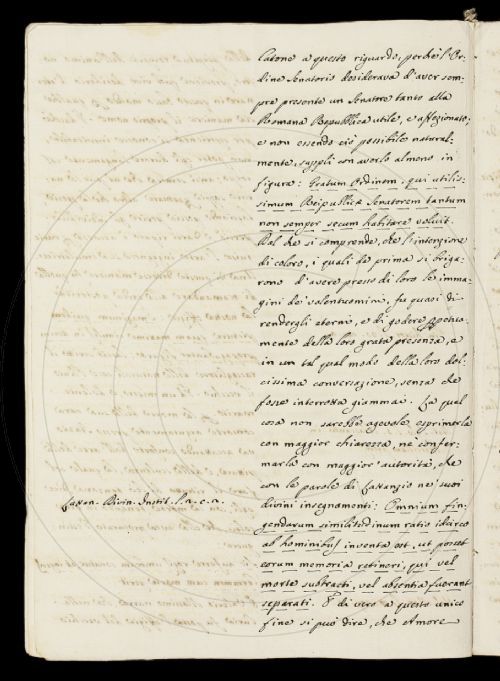 Catone a questo riguardo, perchè l'Or-
dine Senatorio desiderava d'aver sem-
pre presente un Senatore tanto alla
Romana Repubblica utile, e affezionato;
e non essendo ciò possibile natural-
mente, supplì con averlo almeno in
figura: Gratum Ordinem, qui utilis-
simum Reipublicæ Senatorem tantum
non semper secum habitare voluit.
Dal che si comprende, che l'intenzione
di coloro, i quali da prima si briga-
rono d'avere presso di loro le imma-
gini de' valentuomini, fu quasi di
rendergli eterni, e di godere perpetua-
mente della loro grata presenza, e
in un tal qual modo della loro dol-
cissima conversazione, senza che
fosse interrotta giammai. La qual
cosa non sarebbe agevole esprimerla
con maggior chiarezza, nè confer-
marla con maggior autorità, che
con le parole di Lattanzio ne' suoi
divini insegnamenti: Omnium fin-
gendarum similitudinum ratio idcirco
ab hominibus inventa est, ut posset
eorum memoria retineri, qui vel
morte subtracti, vel absentia fuerant
separati. E di vero a questo unico
fine si può dire, che Amore
Lattan. Divin. Instit. l. 2. c. 2.